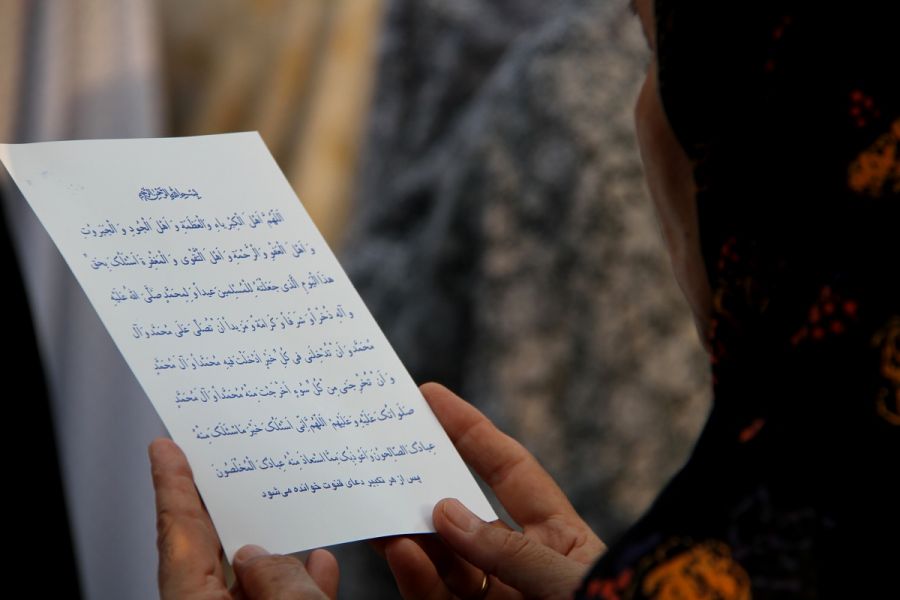 بسم الله الرحمن الرحیم
اَللّهُمَّ اَهْلَ الْکِبْرِیاءِ وَالْعَظَمَةِ وَ اَهْلَ الْجُودِ وَ الْجَبَرُوتِ
وَ اَهْلَ الْعَفْوِ وَ الرَّحْمَةِ وَ اَهْلَ التَّقْوی وَ الْمَغْفِرَةِ اَسْئَلُکَ بِحَقِّ
هذَا الْیَومِ الَّذی جَعَلْتَهُ لِلْمُسْلِمینَ عیداً وَ لِمُحَمَّدٍ صَلَّی اللهُ عَلَیْهِ
وَ آلِهِ ذُخْراً وَ شَرَفاً وَ کَرامَةً وَ مَزیداً اَنْ تُصَلِّیَ عَلی مُحَمَّدٍ وَ آلِ
مُحَمَّدٍ وَ اَنْ تُدْخِلَنی فی کُلِّ خَیْرٍ اَدْخَلْتَ فیهِ مُحَمَّداً وَ آلَ مُحَمَّدٍ
وَ اَنْ تُخْرِجَنی مِن کُلِّ سُوءٍ اَخْرَجْتَ مِنْهُ مُحَمَّداً وَ آلَ مُحَمَّدٍ
صَلَواتُکَ عَلَیْهِ وَ عَلَیْهِم اَللّهُمَّ اِنّی اَسْئَلُکَ خَیْرَ ما سَئَلَکَ مِنْهُ
عِبادُکَ الصّالِحُونَ وَ اَعُوذُ بِکَ مِمَّا اسْتَعاذَ مِنْهُ عِبادُکَ الْمُخْلِصُونَ
پس از هر تکبیر دعای قنوت خوانده می‌شود